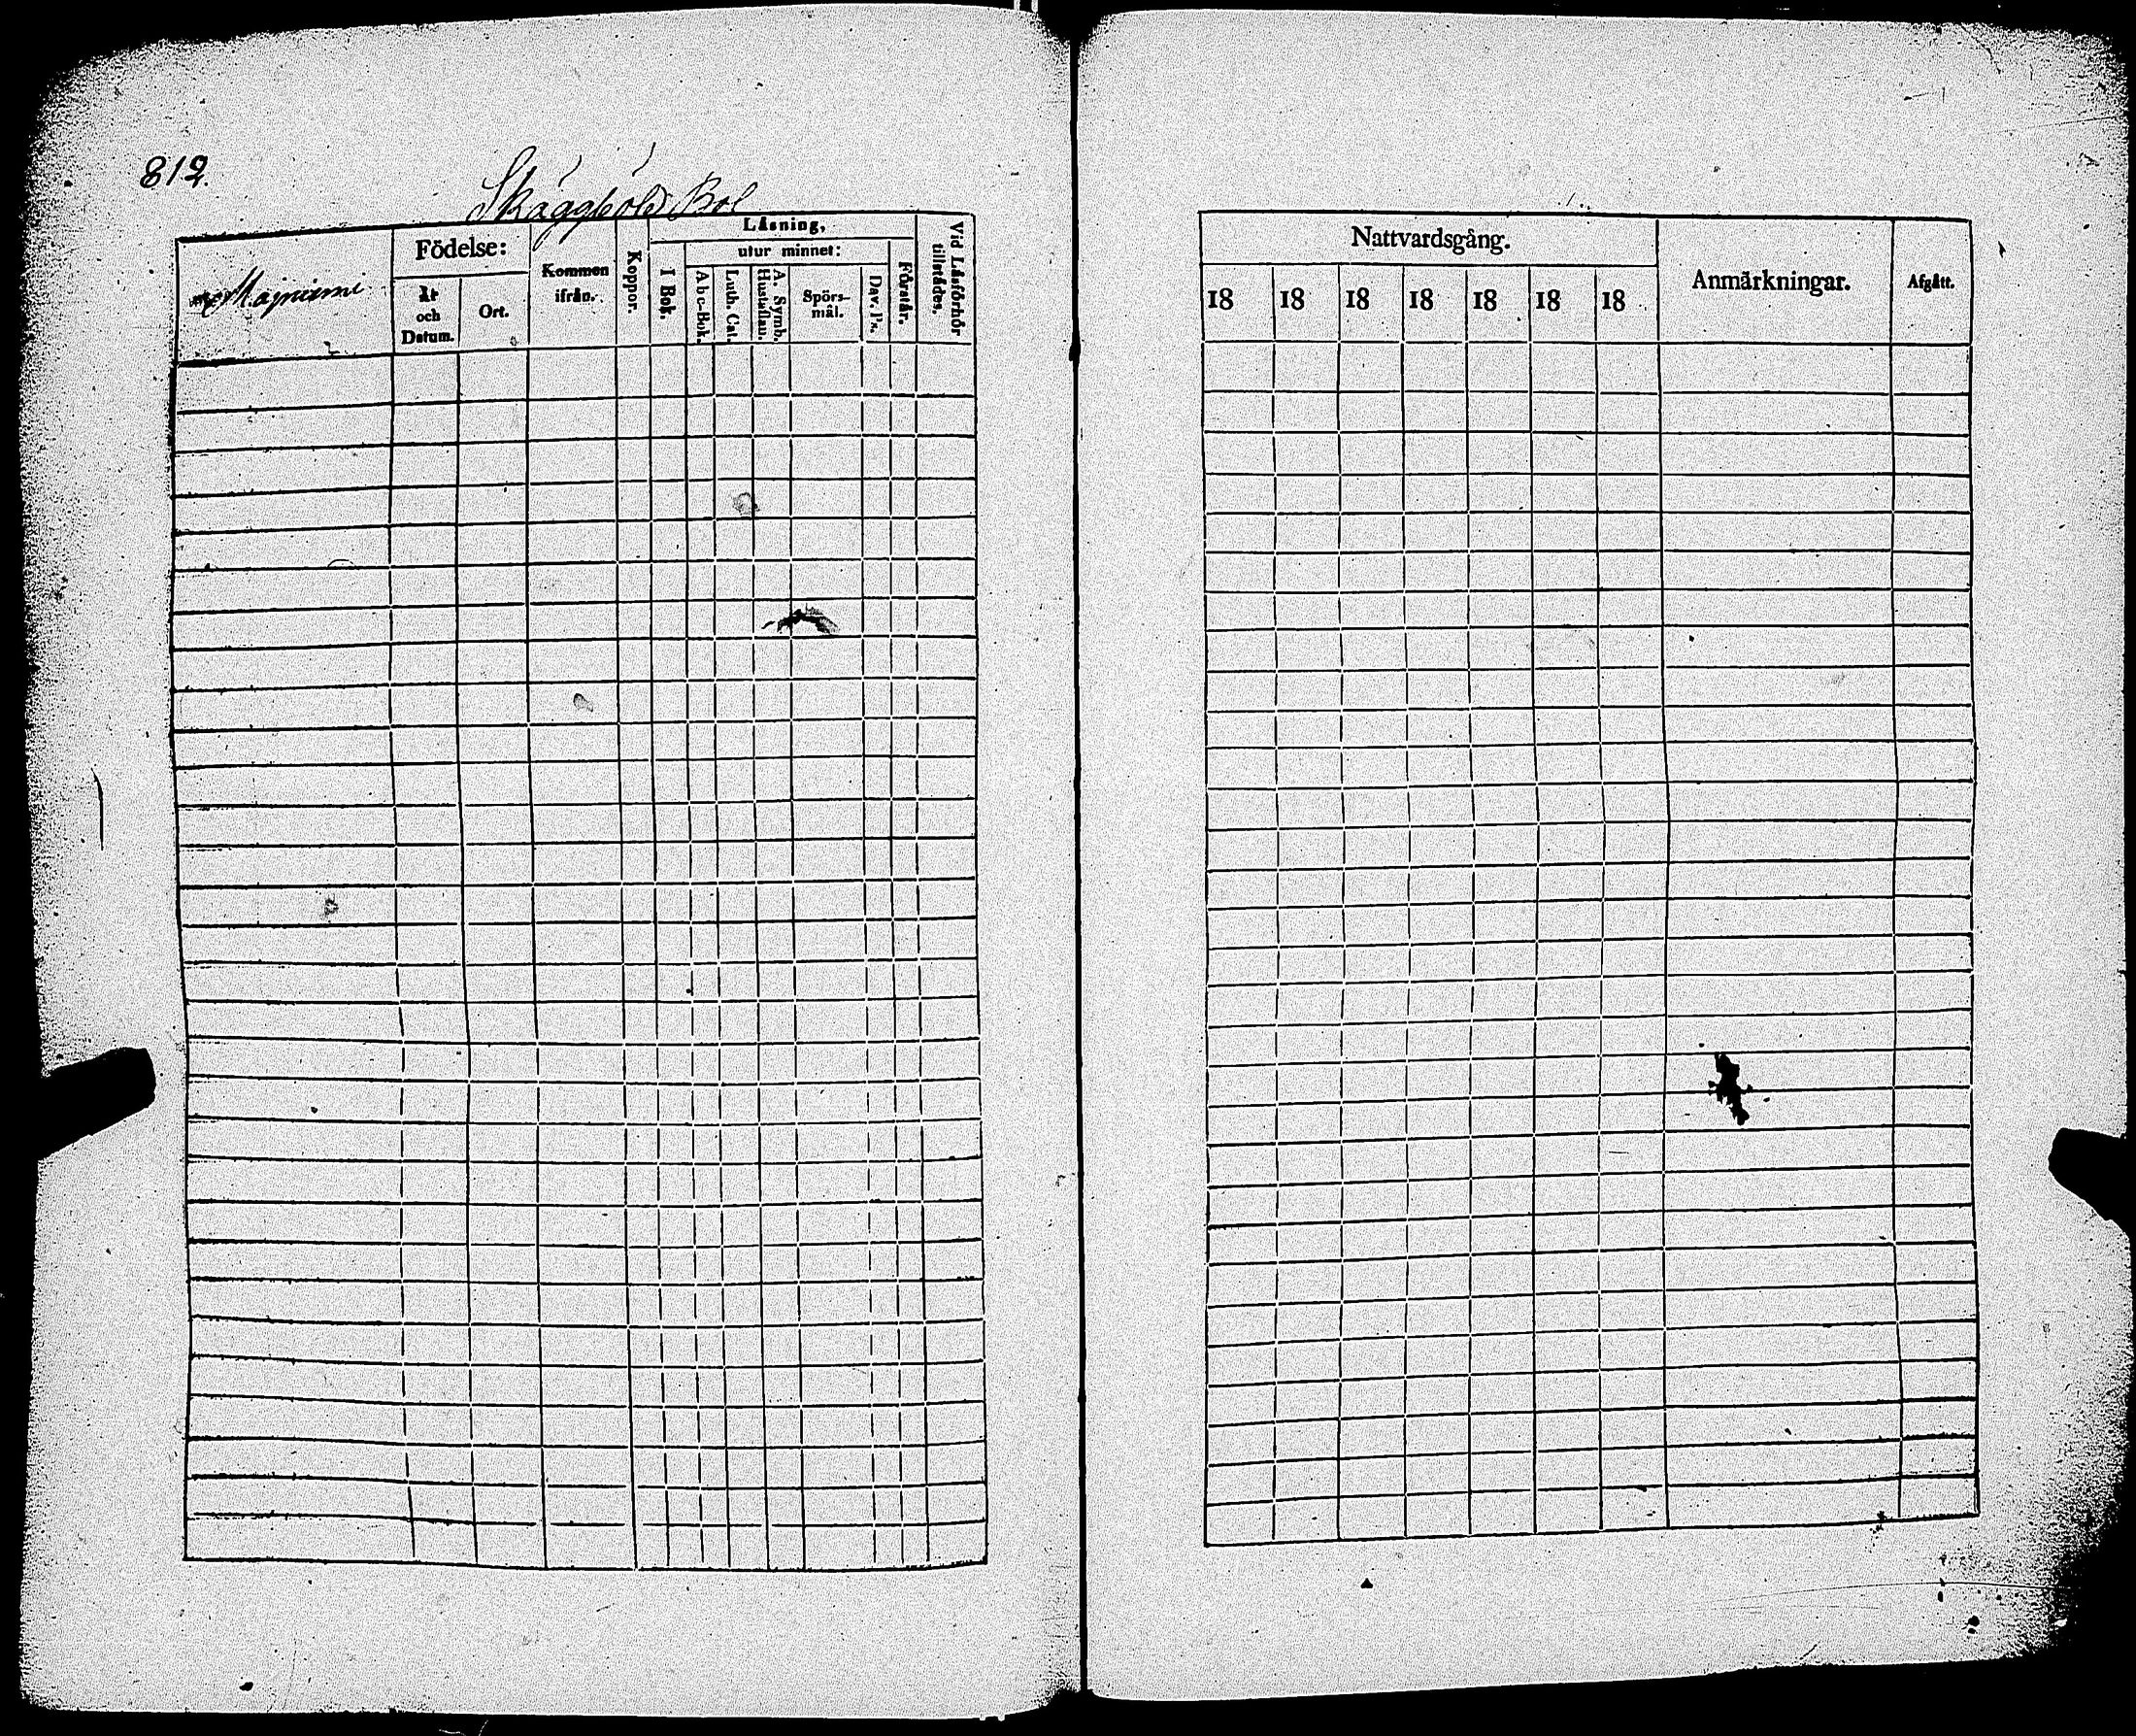 812.
Skäggböle Bol
Födelse:
År och Datum.
Ort.
Kommen ifrån.
Koppor.
Läsning,
I Bok.
utur minnet:
Abc-Bok.
Luth. Cat.
A. Symb. Hustaflan.
Spörs-mål.
Dav. Ps.
Förstår.
Vid Läsförhör tillstädes.
Nattvardsgång.
18 18 18 18 18 18 18
Anmärkningar.
Afgått.